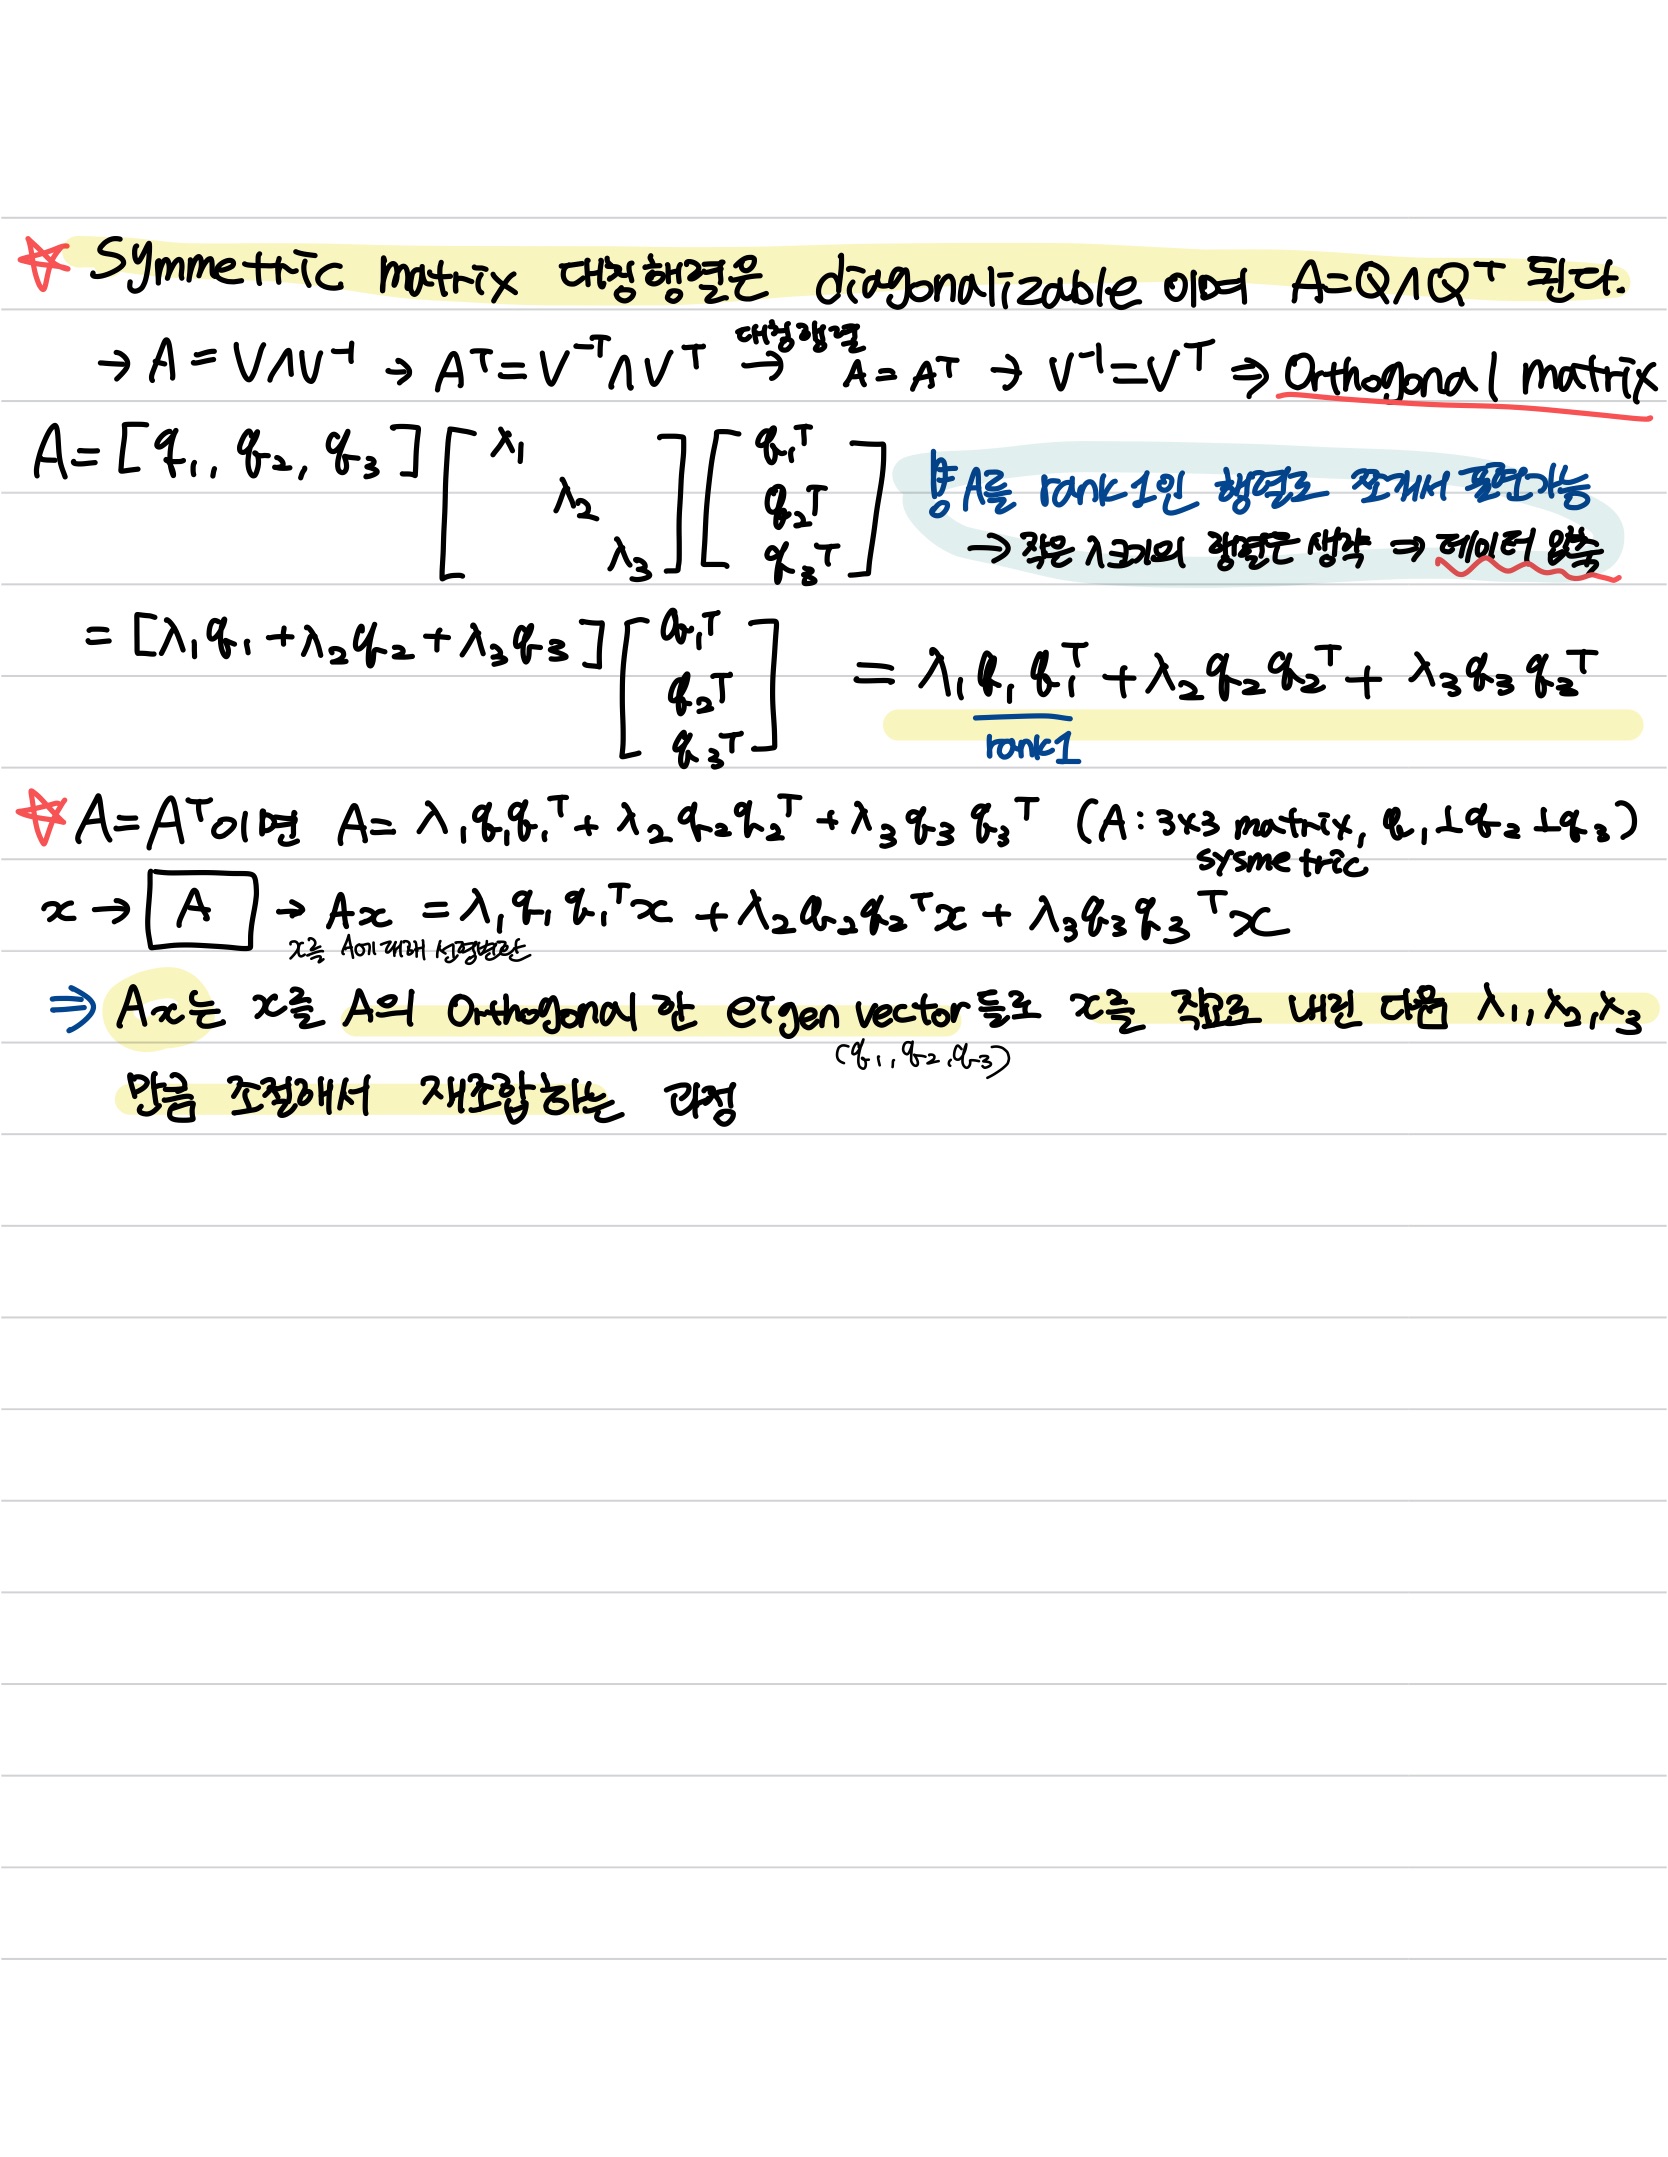 ☆ Symmetric matrix 대칭행렬은 diagonalizable 이며 A=QΛQᵀ 된다.
→ A = VΛV⁻¹ → Aᵀ = V⁻ᵀΛVᵀ → 대칭행렬 A = Aᵀ → V⁻¹ = Vᵀ ⇒ Orthogonal matrix
A = [q₁, q₂, q₃] [λ₁ λ₂ λ₃] [q₁ᵀ q₂ᵀ q₃ᵀ]
A를 rank1인 행렬로 쪼개서 표현가능
→ 작은 λ크기의 행렬은 생략 ⇒ 데이터 압축
= [λ₁q₁ + λ₂q₂ + λ₃q₃] [q₁ᵀ q₂ᵀ q₃ᵀ] = λ₁q₁q₁ᵀ + λ₂q₂q₂ᵀ + λ₃q₃q₃ᵀ
rank1
☆ A = Aᵀ이면 A = λ₁q₁q₁ᵀ + λ₂q₂q₂ᵀ + λ₃q₃q₃ᵀ (A : 3x3 matrix, q₁⊥q₂⊥q₃)
sysmetric
x → A → Ax = λ₁q₁q₁ᵀx + λ₂q₂q₂ᵀx + λ₃q₃q₃ᵀx
x를 A에 대해 선형변환
⇒ Ax는 x를 A의 Orthogonal 한 eigen vector들로 x를 직교로 내린 다음 λ₁, λ₂, λ₃
(q₁, q₂, q₃)
만큼 조절해서 재조합하는 과정